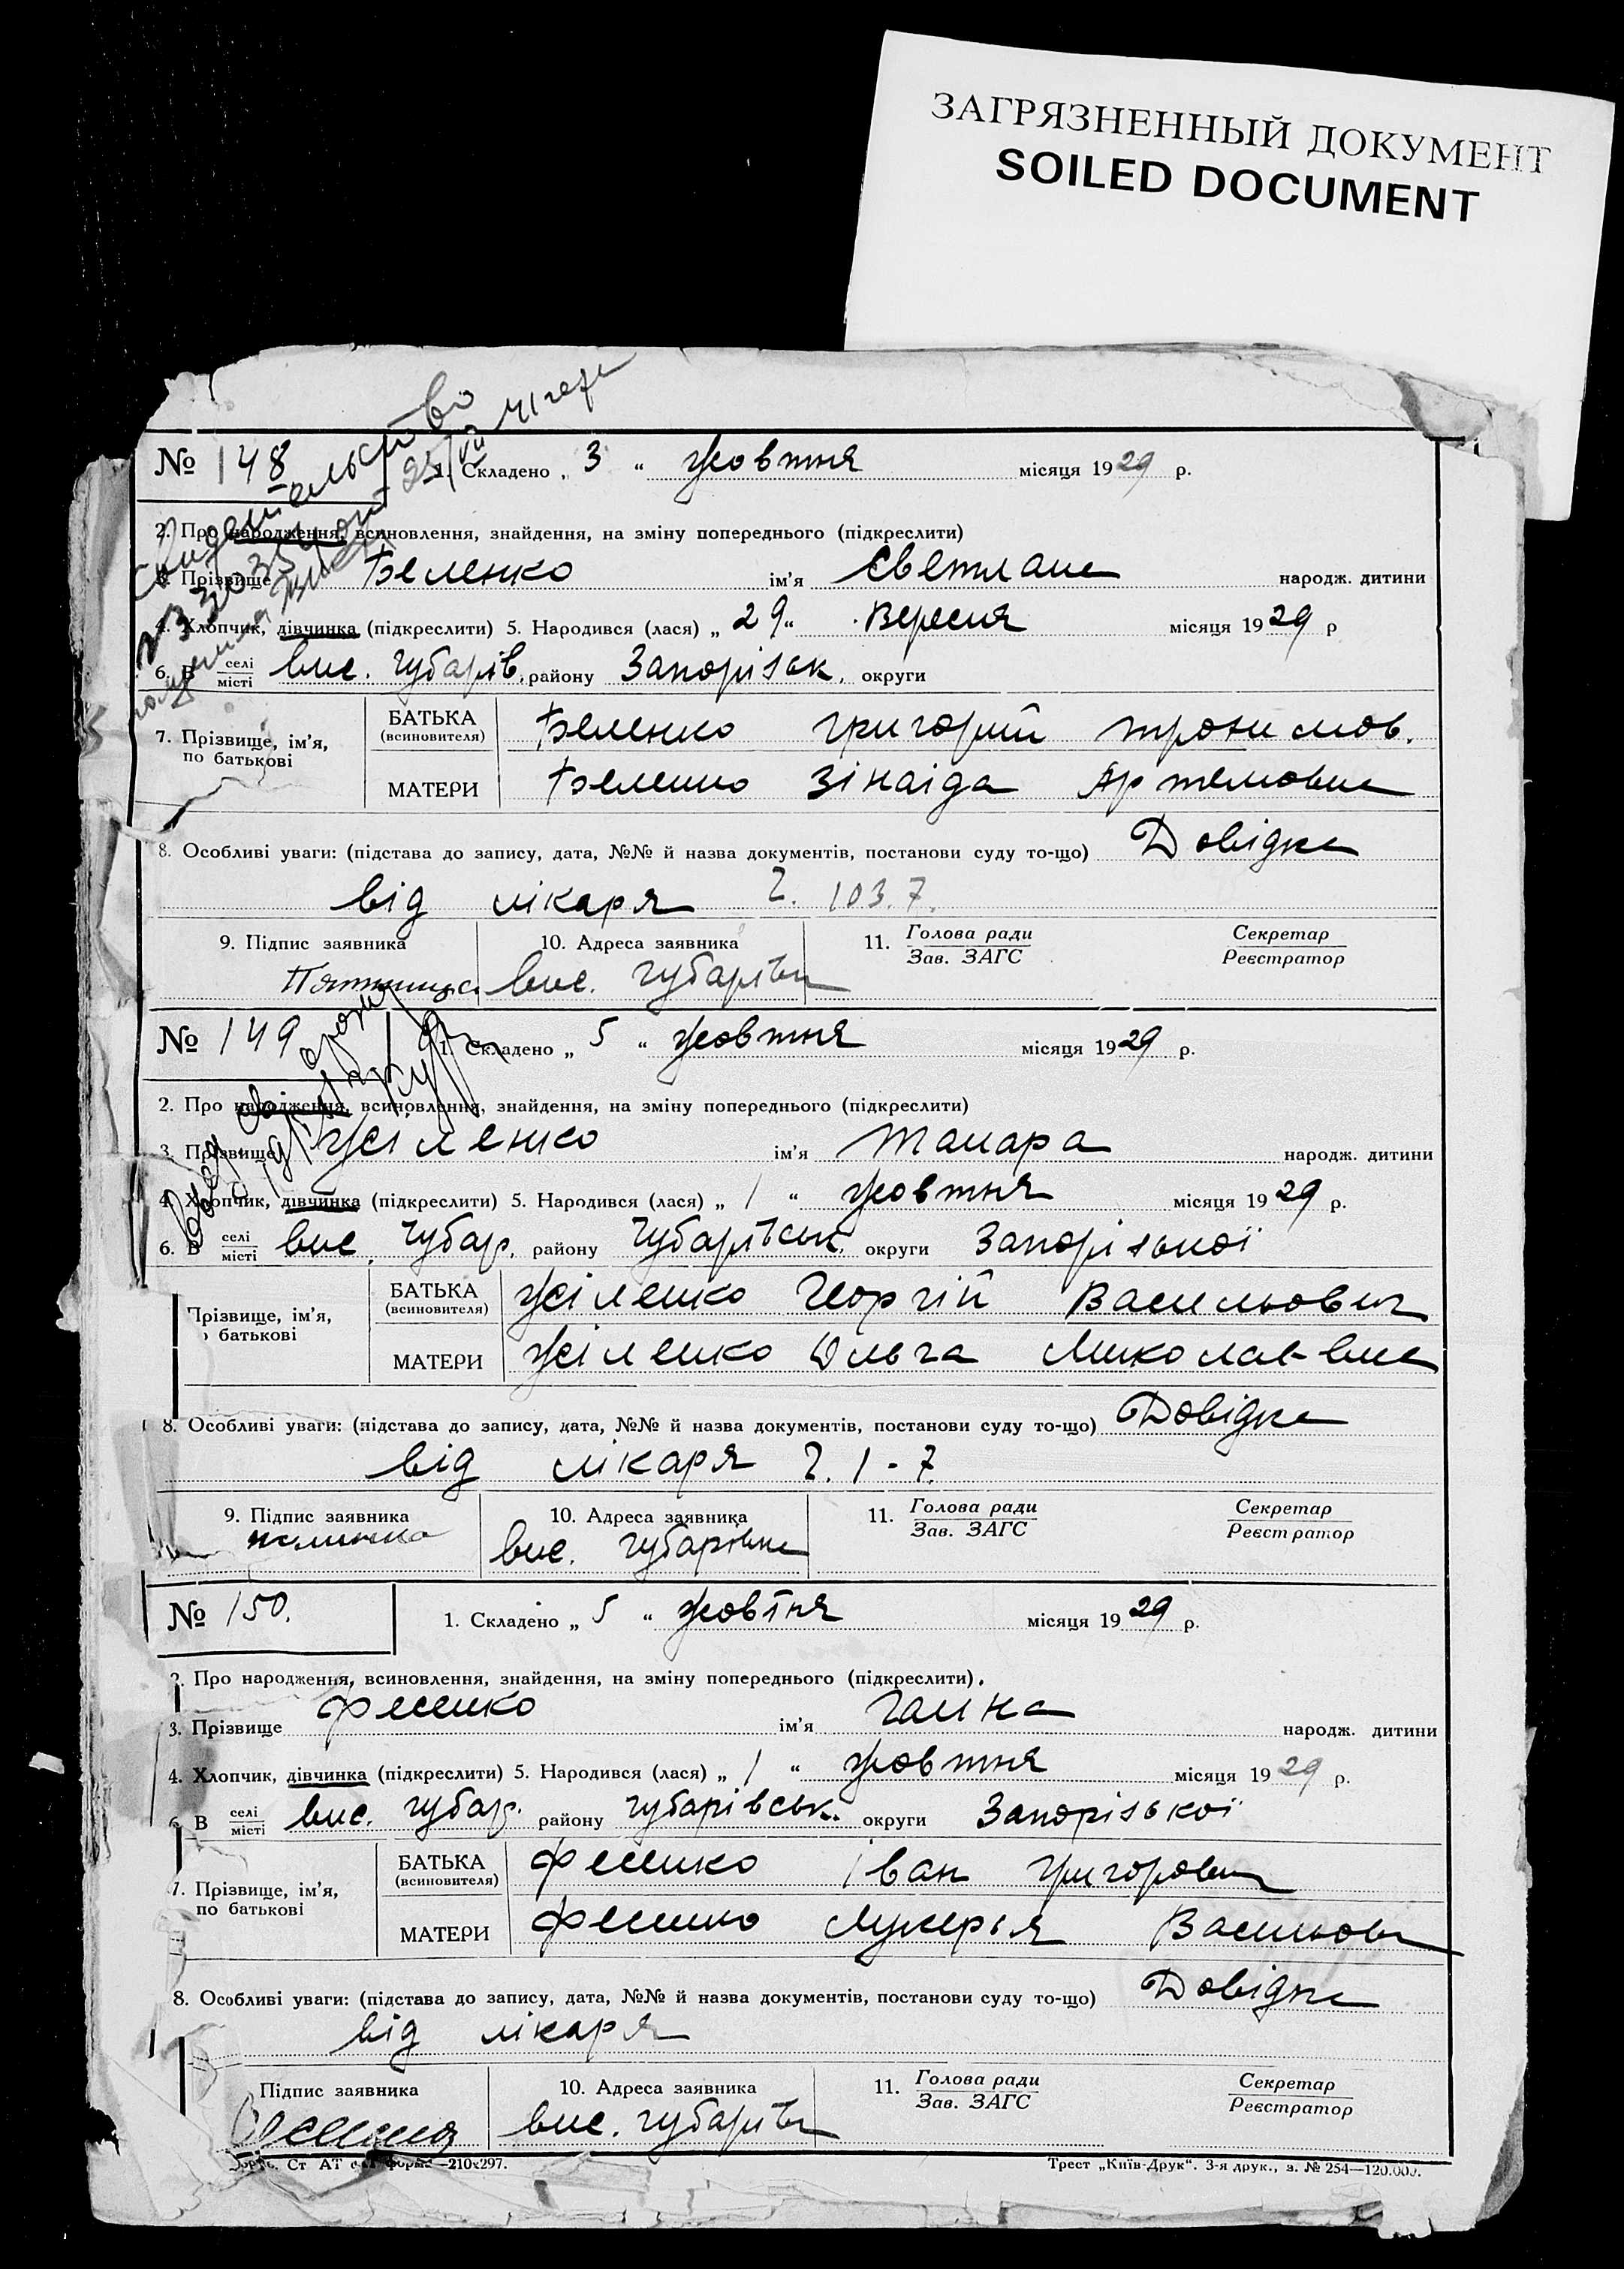 ЗАГРЯЗНЕННЫЙ ДОКУМЕНТ
SOILED DOCUMENT
№ 148
1. Складено „ 3 “ жовтня місяця 1929 р.
2. Про народження, всиновлення, знайдення, на зміну попереднього (підкреслити)
3. Прізвище Беленко ім'я Светлана народж. дитини
4. Хлопчик, дівчинка (підкреслити) 5. Народився (лася) „ 29 “ Вересня місяця 1929 р
6. В селі/місті вис. Губарів. району Запорізьк. округи
7. Прізвище, ім'я, по батькові
БАТЬКА (всиновителя) Беленко Григорий Трофимов.
МАТЕРИ Беленко Зінаіда Артемовна
8. Особливі уваги: (підстава до запису, дата, №№ й назва документів, постанови суду то-що) Довідка
від лікаря Ч. 103.7.
9. Підпис заявника 10. Адреса заявника 11. Голова ради/Зав. ЗАГС Секретар/Реєстратор
вис. Губарівк
№ 149
1. Складено „ 5 “ жовтня місяця 1929 р.
2. Про народження, всиновлення, знайдення, на зміну попереднього (підкреслити)
3. Прізвище Жіленко ім'я Тамара народж. дитини
4. Хлопчик, дівчинка (підкреслити) 5. Народився (лася) „ 1 “ жовтня місяця 1929 р.
6. В селі/місті вис. Губар. району Губарівськ. округи Запорізькоі
Прізвище, ім'я, по батькові
БАТЬКА (всиновителя) Жіленко Георгій Васильович
МАТЕРИ Жіленко Ольга Миколаевна
8. Особливі уваги: (підстава до запису, дата, №№ й назва документів, постанови суду то-що) Довідка
від лікаря Ч. 1-7.
9. Підпис заявника 10. Адреса заявника 11. Голова ради/Зав. ЗАГС Секретар/Реєстратор
вис. Губарівка
№ 150.
1. Складено „ 5 “ жовтня місяця 1929 р.
2. Про народження, всиновлення, знайдення, на зміну попереднього (підкреслити).
3. Прізвище Фесенко ім'я Ганна народж. дитини
4. Хлопчик, дівчинка (підкреслити) 5. Народився (лася) „ 1 “ жовтня місяця 1929 р.
6. В селі/місті вис. Губар. району Губарівськ. округи Запорізькоі
7. Прізвище, ім'я, по батькові
БАТЬКА (всиновителя) Фесенко Іван Григорович
МАТЕРИ Фесенко Лукерья Васильовн
8. Особливі уваги: (підстава до запису, дата, №№ й назва документів, постанови суду то-що) Довідка
від лікаря
Підпис заявника 10. Адреса заявника 11. Голова ради/Зав. ЗАГС Секретар/Реєстратор
вис. Губарівк
Ст АТ форма—210х297. Трест „Київ-Друк“. 3-я друк., з. № 254—120.000.